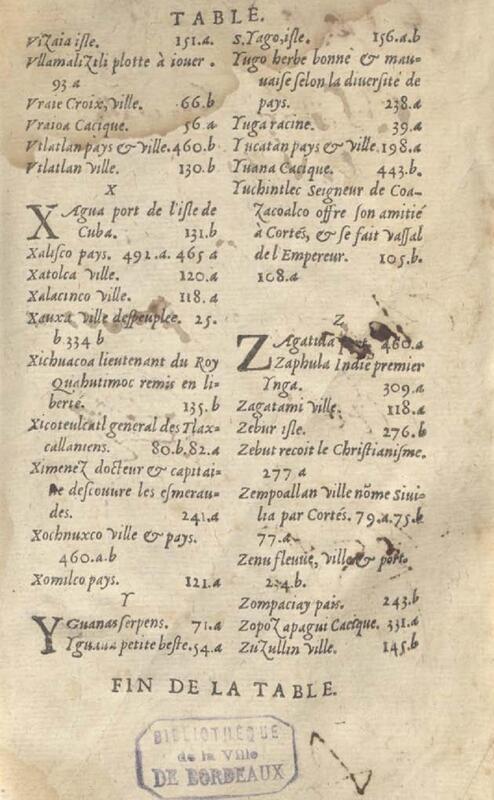 TABLE.
Vizaia isle. 151.a.
Vllamaliztli plotte à iouer.
93 a
Vraie Croix, ville. 66.b
Vraioa Cacique. 56.a
Vtlatlan pays & ville. 460.b
Vtlatlan ville. 130.b
X
XAgua port de l'isle de
Cuba. 131.b
Xalisco pays. 491.a. 465 a
Xatolca ville. 120.a
Xalacinco ville. 118.a
Xauxa ville despeuplee. 25.
b 334 b
Xichuacoa lieutenant du Roy
Quahutimoc remis en li-
berté. 135.b
Xicoteulcatl general des Tlax-
callaniens. 80.b.82.a
Ximenez docteur & capitai-
ne descouure les esmerau-
des. 241.a
Xochnuxco ville & pays.
460.a.b
Xomilco pays. 121.a
Y
YGuanas serpens. 71.a
Yguana petite beste. 54.a
S.Yago, isle. 156.a.b
Yugo herbe bonne & mau-
uaise selon la diuersité de
pays. 238.a
Yuga racine. 39.a
Yucatan pays & ville. 198.a
Yuana Cacique. 443.b.
Yuchintlec Seigneur de Coa-
Zacoalco offre son amitié
à Cortés, & se fait vassal
de l'Empereur. 105.b.
108.a
Z
ZAgatula 460.a
Zaphula Indié premier
Ynga. 309.a
Zagatami ville. 118.a
Zebur isle. 276.b
Zebut recoit le Christianisme.
277 a
Zempoallan ville nõme Siui-
lia par Cortés. 79.a.75.b
77.a
Zenu fleuue, ville & port.
Zompaciay pais. 243.b
Zopozapagui Cacique. 331.a
Zuzullin ville. 145.b
FIN DE LA TABLE.
BIBLIOTHÈQUE
de la Ville
DE BORDEAUX